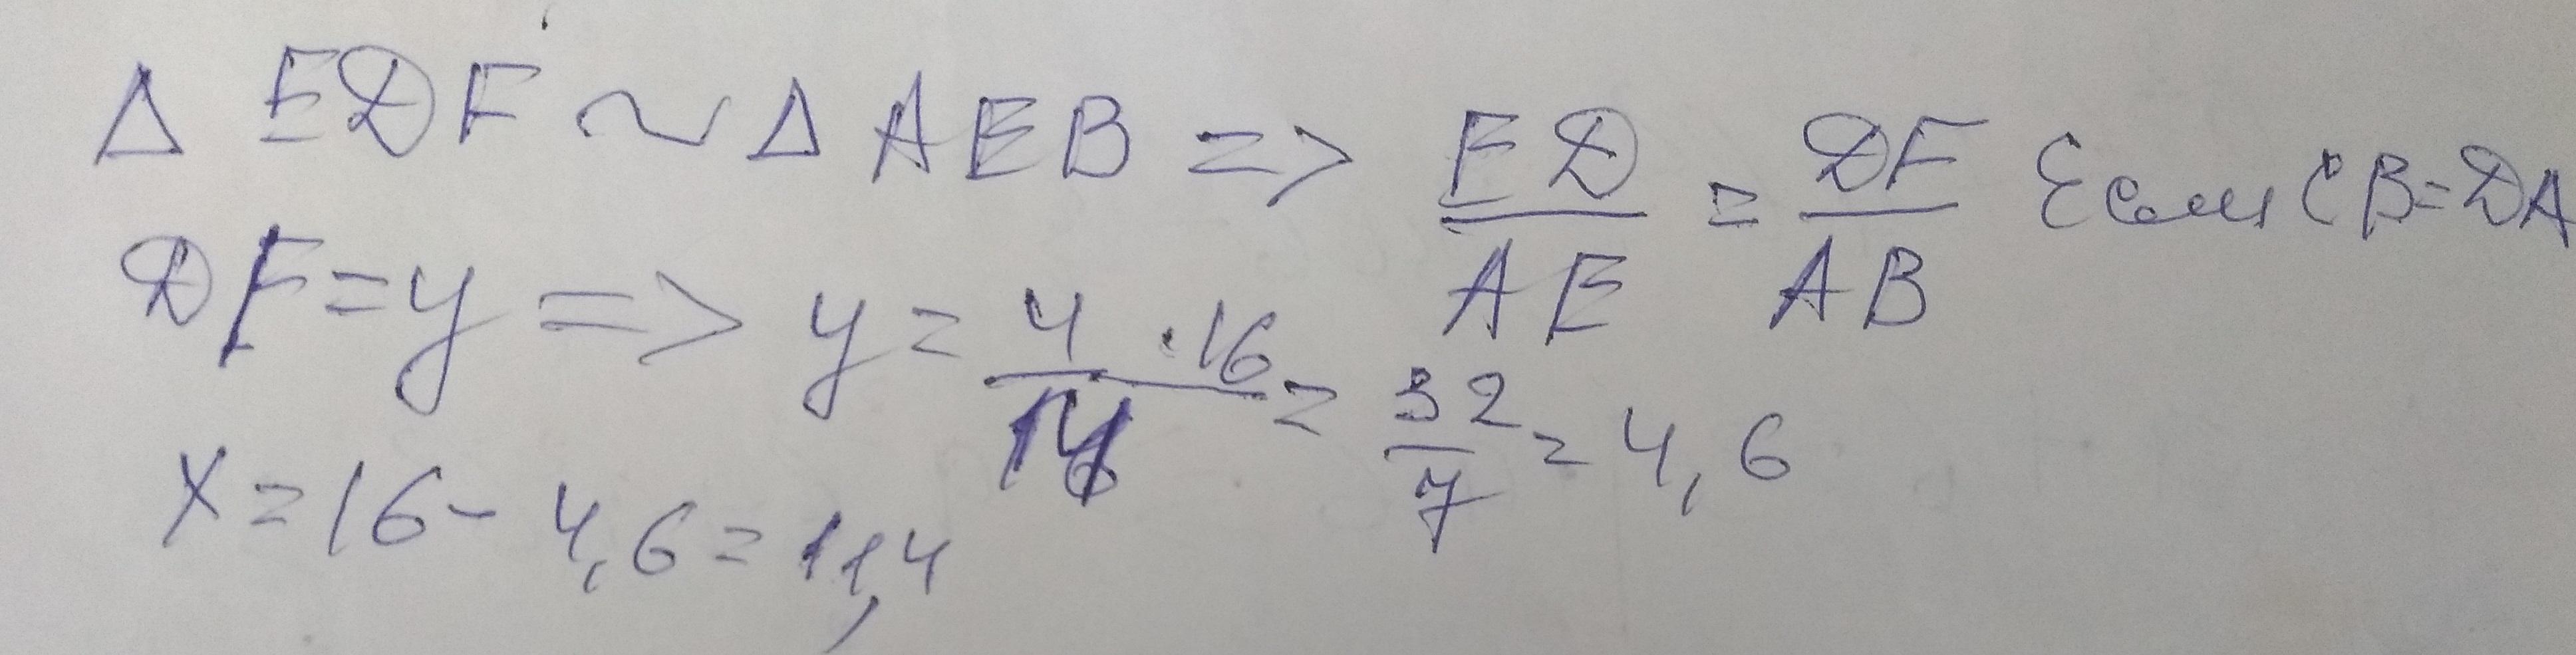 Δ EDF ~ Δ AEB => ED/AE = DF/AB Если CB=DA
DF=y => y = 4·16/14 = 32/7 = 4,6
x = 16 - 4,6 = 11,4